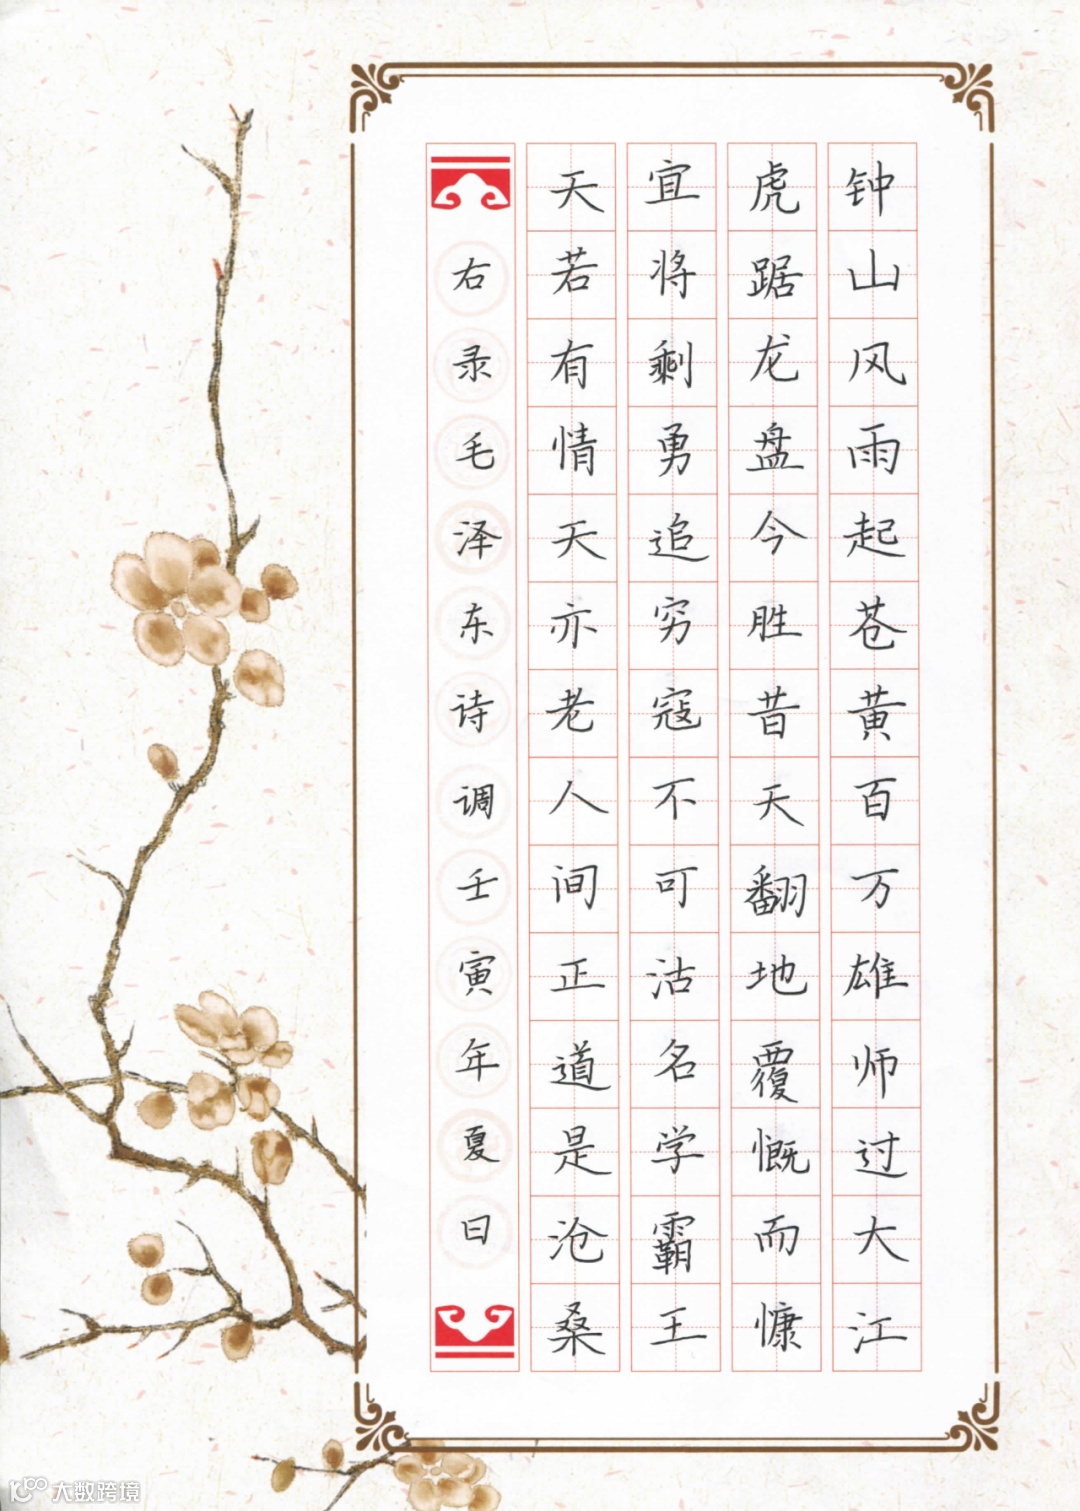 钟山风雨起苍黄百万雄师过大江
虎踞龙盘今胜昔天翻地覆慨而慷
宜将剩勇追穷寇不可沽名学霸王
天若有情天亦老人间正道是沧桑
右录毛泽东诗调壬寅年夏日
大数跨境